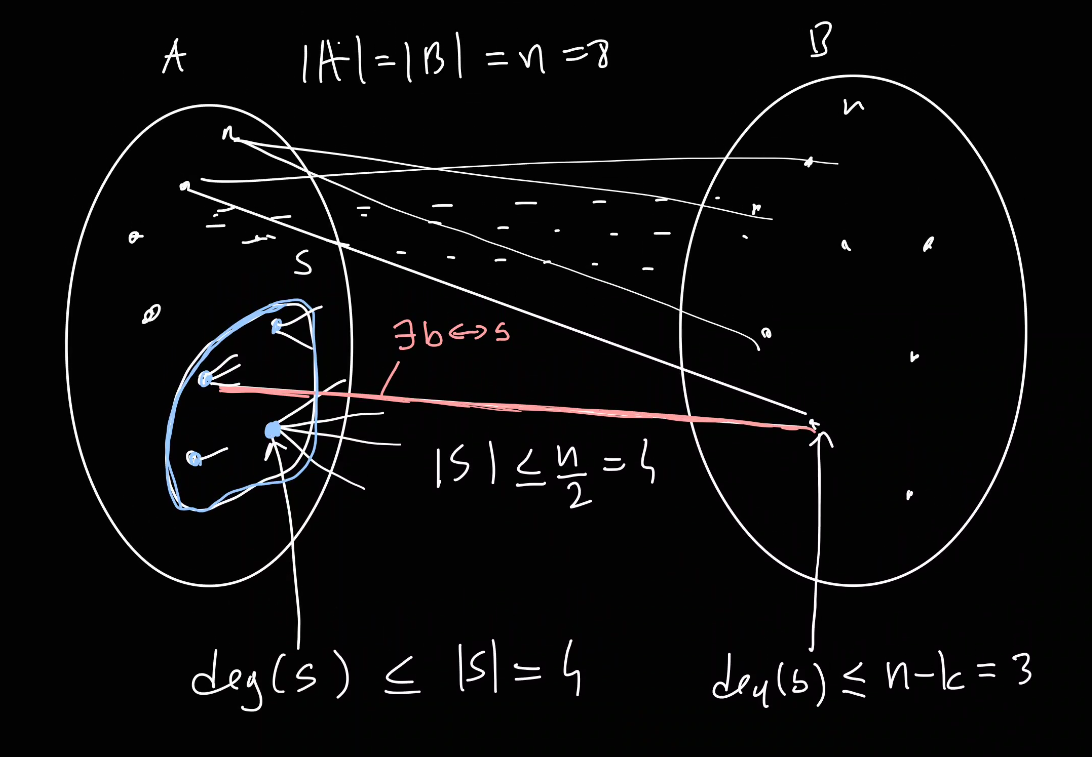 A |A| = |B| = n = 8 B
n
S
∃b↔s
|S| ≤ n/2 = 4
deg(s) ≤ |S| = 4 deg(b) ≤ n-k = 3